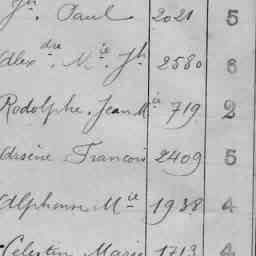 Jh. Paul 2021 5
Alexdre. Mie Jh 2580 6
Rodolphe. Jean Mie 719 2
Arsène François 2409 5
Alphonse Mie 1938 4
Célestin Marie 1713 4